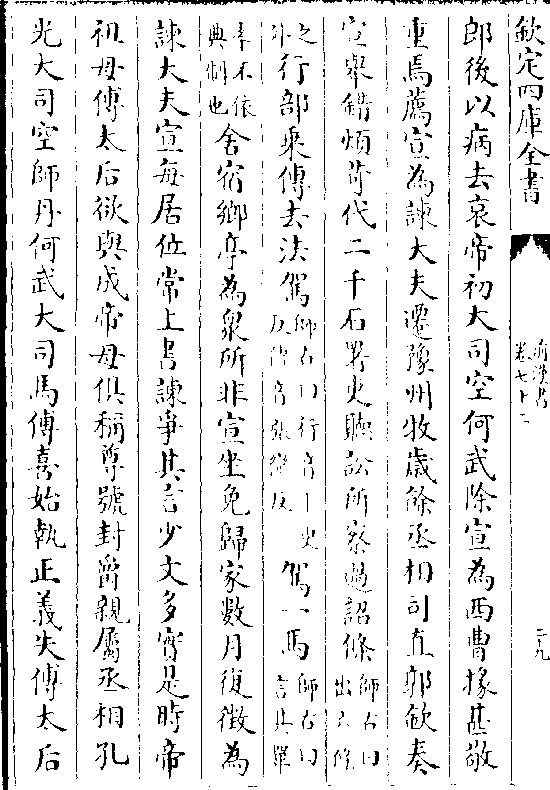 欽定四庫全書
前漢書
卷七十二
二九
郎後以病去哀帝初大司空何武除宣為西曹掾甚敬
重焉薦宣為諫大夫遷豫州牧歲餘丞相司直郭欽奏
宣舉錯煩苛代二千石署吏聽訟所察過詔條師古曰
出六條
之
外行部乗傳去法駕師古曰行音下更
反傳音張戀反駕一馬師古曰
言其單
率不依
典制也舍宿鄉亭為衆所非宣坐免歸家數月復徴為
諫大夫宣每居位常上書諫爭其言少文多實是時帝
祖母傅太后欲與成帝母俱稱尊號封爵親屬丞相孔
光大司空師丹何武大司馬傅喜始執正義失傅太后